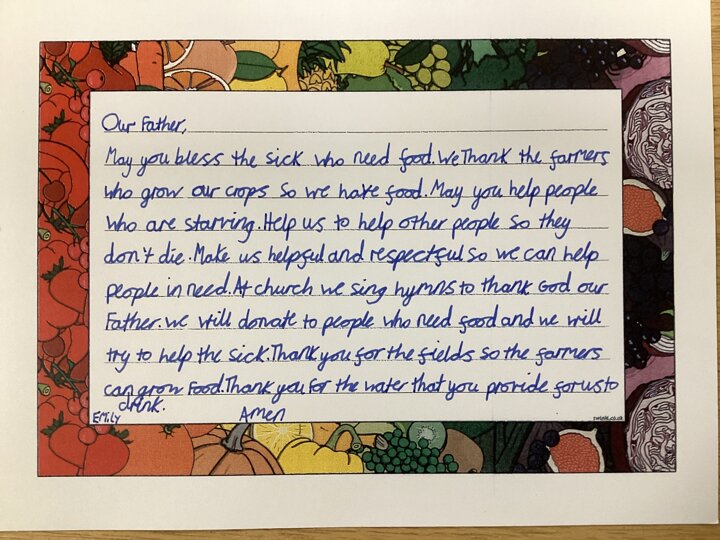 Our Father,
May you bless the sick who need food. We Thank the farmers
who grow our crops so we have food. May you help people
who are starving. Help us to help other people so they
don't die. Make us helpful and respectful so we can help
people in need. At church we sing hymns to thank God our
Father. We will donate to people who need food and we will
try to help the sick. Thank you for the fields so the farmers
can grow Food. Thank you for the water that you provide for us to
drink.
Emily Amen
twinkl.co.uk